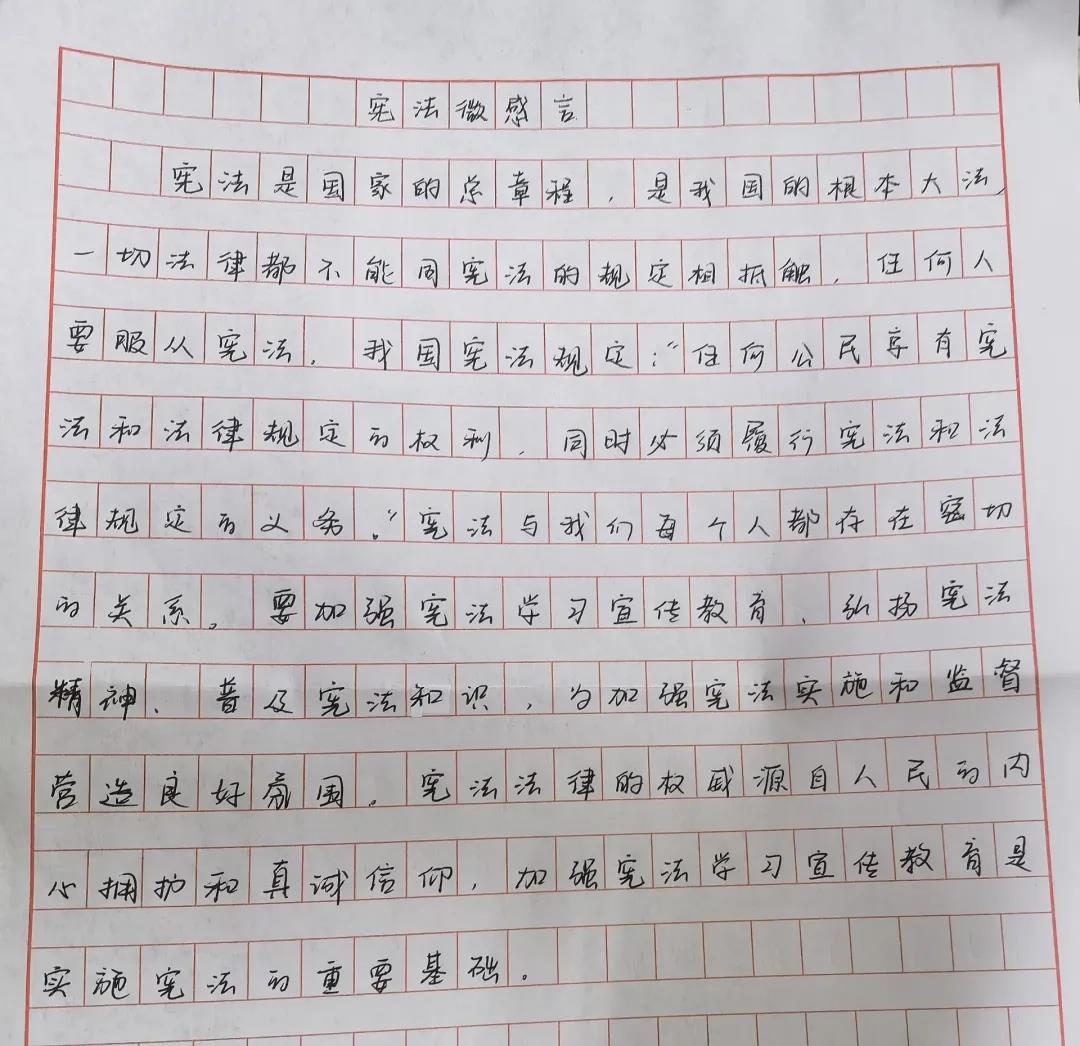 宪法微感言
宪法是国家的总章程，是我国的根本大法，
一切法律都不能同宪法的规定相抵触，任何人
要服从宪法。我国宪法规定：“任何公民享有宪
法和法律规定的权利，同时必须履行宪法和法
律规定的义务。”宪法与我们每个人都存在密切
的关系。要加强宪法学习宣传教育、弘扬宪法
精神、普及宪法知识，为加强宪法实施和监督
营造良好氛围。宪法法律的权威源自人民的内
心拥护和真诚信仰，加强宪法学习宣传教育是
实施宪法的重要基础。